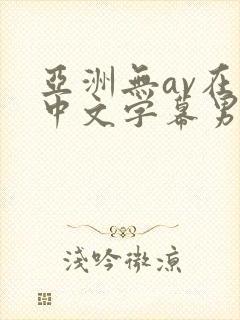 亞洲無av在
中文字幕男
淺吟微涼